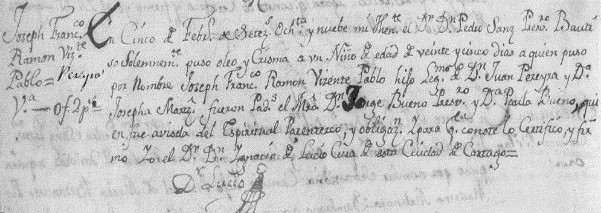 Joseph Franco
Ramon Vizte
Pablo=
Va — Of. 2ps
En Cinco de Febro de Setezs Ochta y nuebe mi Thente el Sr Dn Pedro Sanz Presro Bauti
só Solemnemte puso oleo y Crisma a vn Niño de edad de veinte y cinco dias a quien puso
por Nombre Joseph Franco Ramon Vizente Pablo hijo Legmo de Dn Juan Pereyra y Da
Josepha Marz fueron Pads el Mro Dn Jorge Bueno Presro y Da Paula Bueno, qui
en fue avisada del Espiritual Parentezco, y obligazn Y para qe conste lo Certifico, y fir
mo Yo el Dr Dn Ignacio de Cura de esta Ciudad de Cartago=
Dr